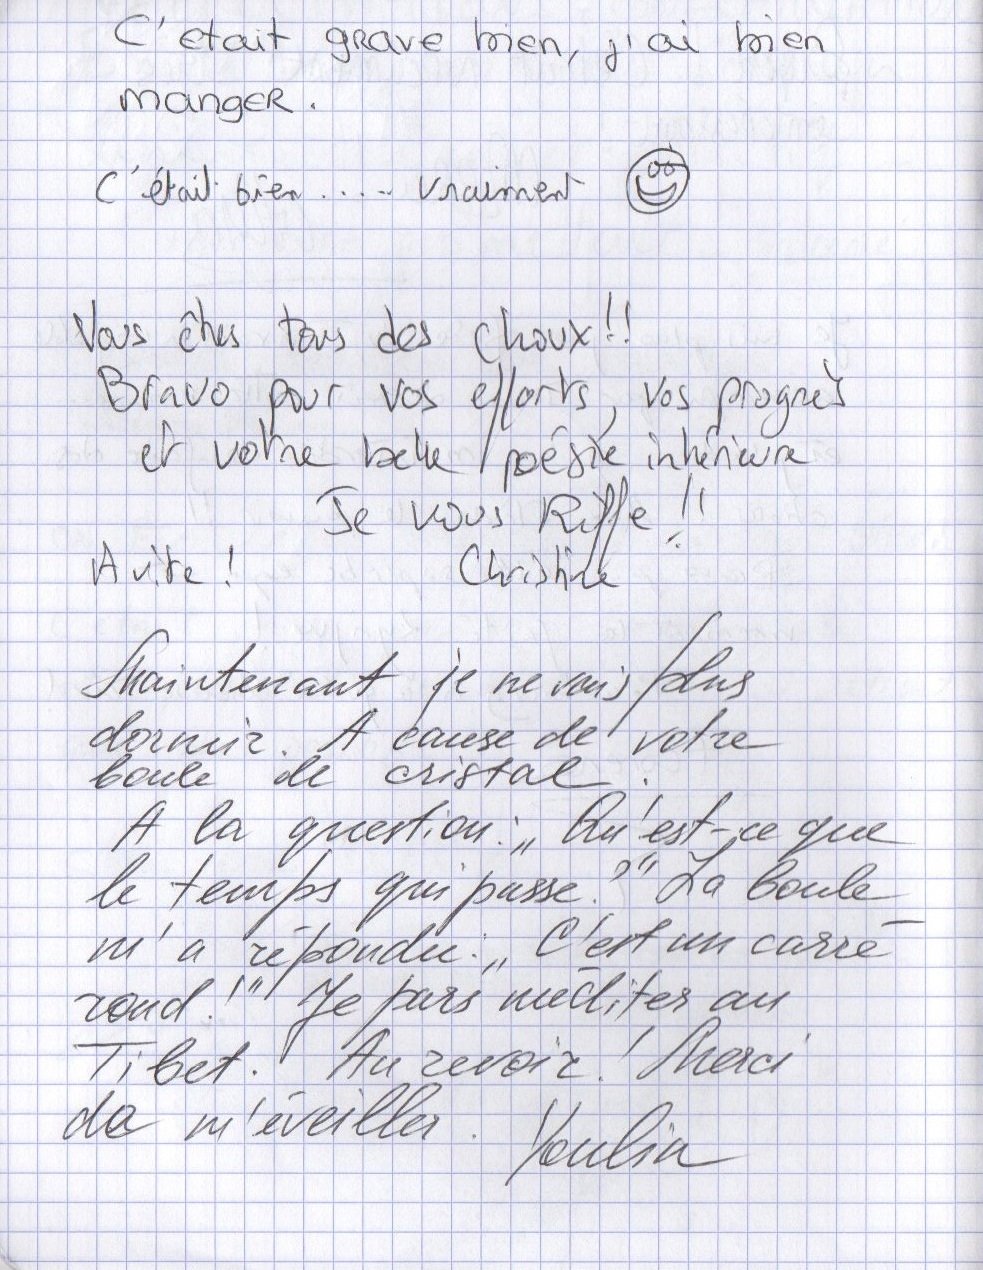 C'etait grave bien, j'ai bien
manger.
C'était bien..... vraiment
Vous êtes tous des choux!!
Bravo pour vos efforts, vos progrès
et votre belle poésie intérieure
Je vous Kiffe !!
A vite !
Christine
Maintenant je ne vais plus
dormir. A cause de votre
boule de cristal.
A la question: „Qu'est-ce que
le temps qui passe?" La boule
m'a répondu: „C'est un carré
rond!" Je pars méditer au
Tibet. Au revoir! Merci
de m'éveiller.